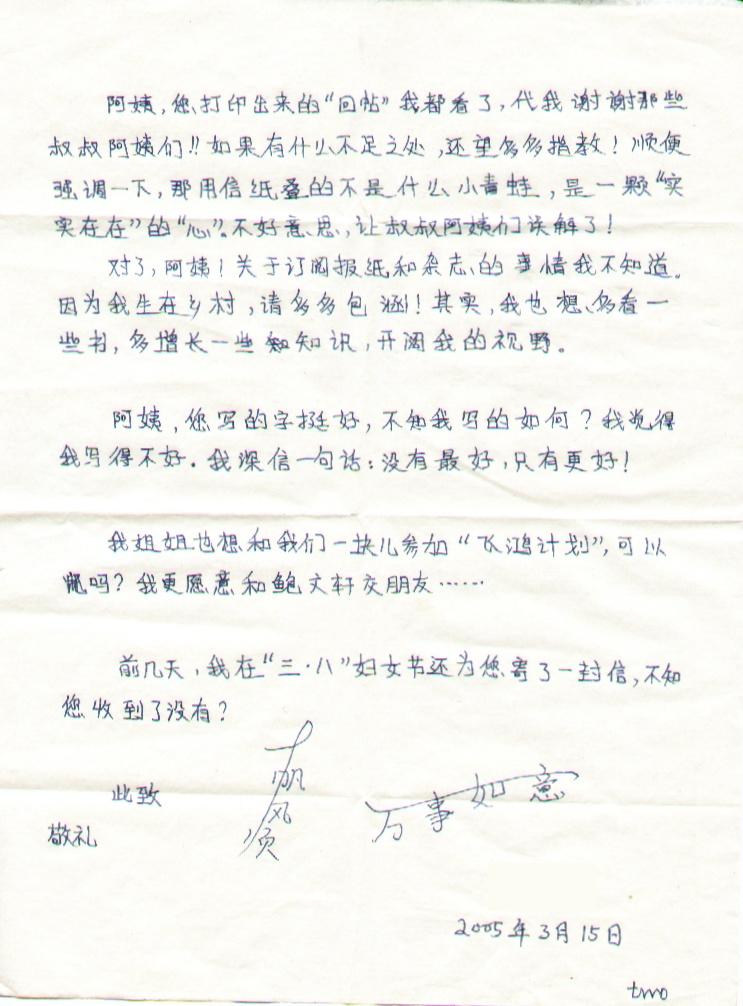 阿姨,您打印出来的“回帖”我都看了,代我谢谢那些
叔叔阿姨们!!如果有什么不足之处,还望多多指教!顺便
强调一下,那用信纸叠的不是什么小青蛙,是一颗“实
实在在”的“心”。不好意思,让叔叔阿姨们误解了!
对了,阿姨!关于订阅报纸和杂志的事情我不知道。
因为我生在乡村,请多多包涵!其实,我也想多看一
些书,多增长一些知识,开阔我的视野。
阿姨,您写的字挺好,不知我写的如何?我觉得
我写得不好。我深信一句话:没有最好,只有更好!
我姐姐也想和我们一块儿参加“飞鸿计划”,可以
吗?我更愿意和鲍文轩交朋友……
前几天,我在“三·八”妇女节还为您寄了一封信,不知
您收到了没有?
此致
敬礼
一帆风顺
万事如意
2005年3月15日